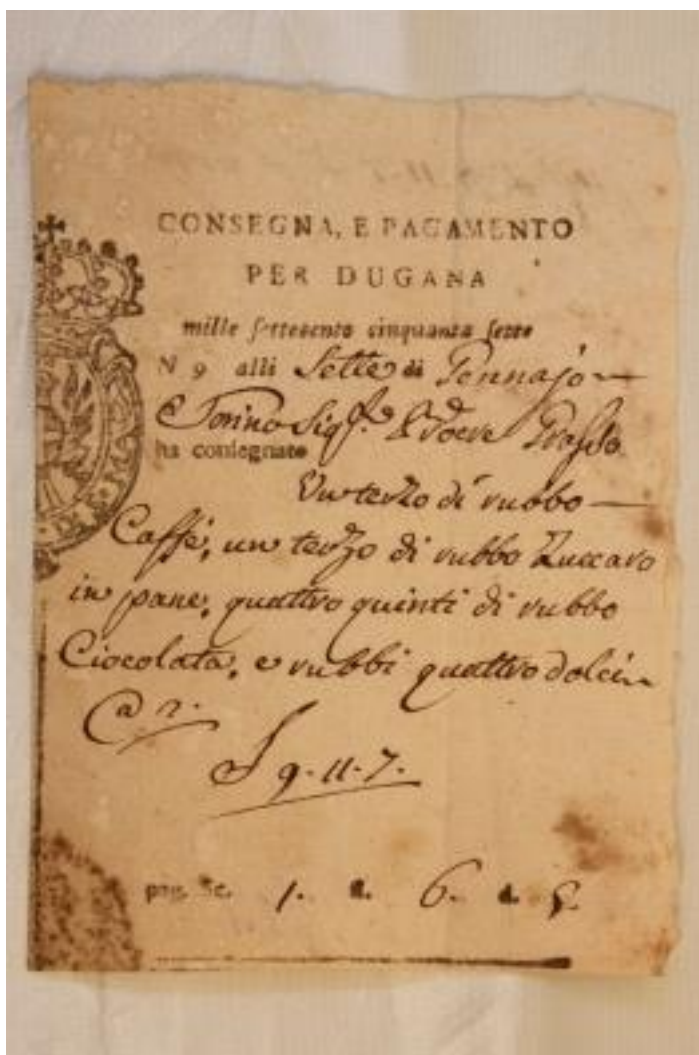 CONSEGNA, E PAGAMENTO
PER DUGANA
mille settecento cinquanta sette
N 9 alli Sette di Gennajo
Torino Sig.
ha consegnato
Un terzo di rubbo
Caffé, un terzo di rubbo Zuccaro
in pane, quattro quinti di rubbo
Ciocolata, e rubbi quattro dolci
9. 11. 7.
pag. Sc. 1. 6.